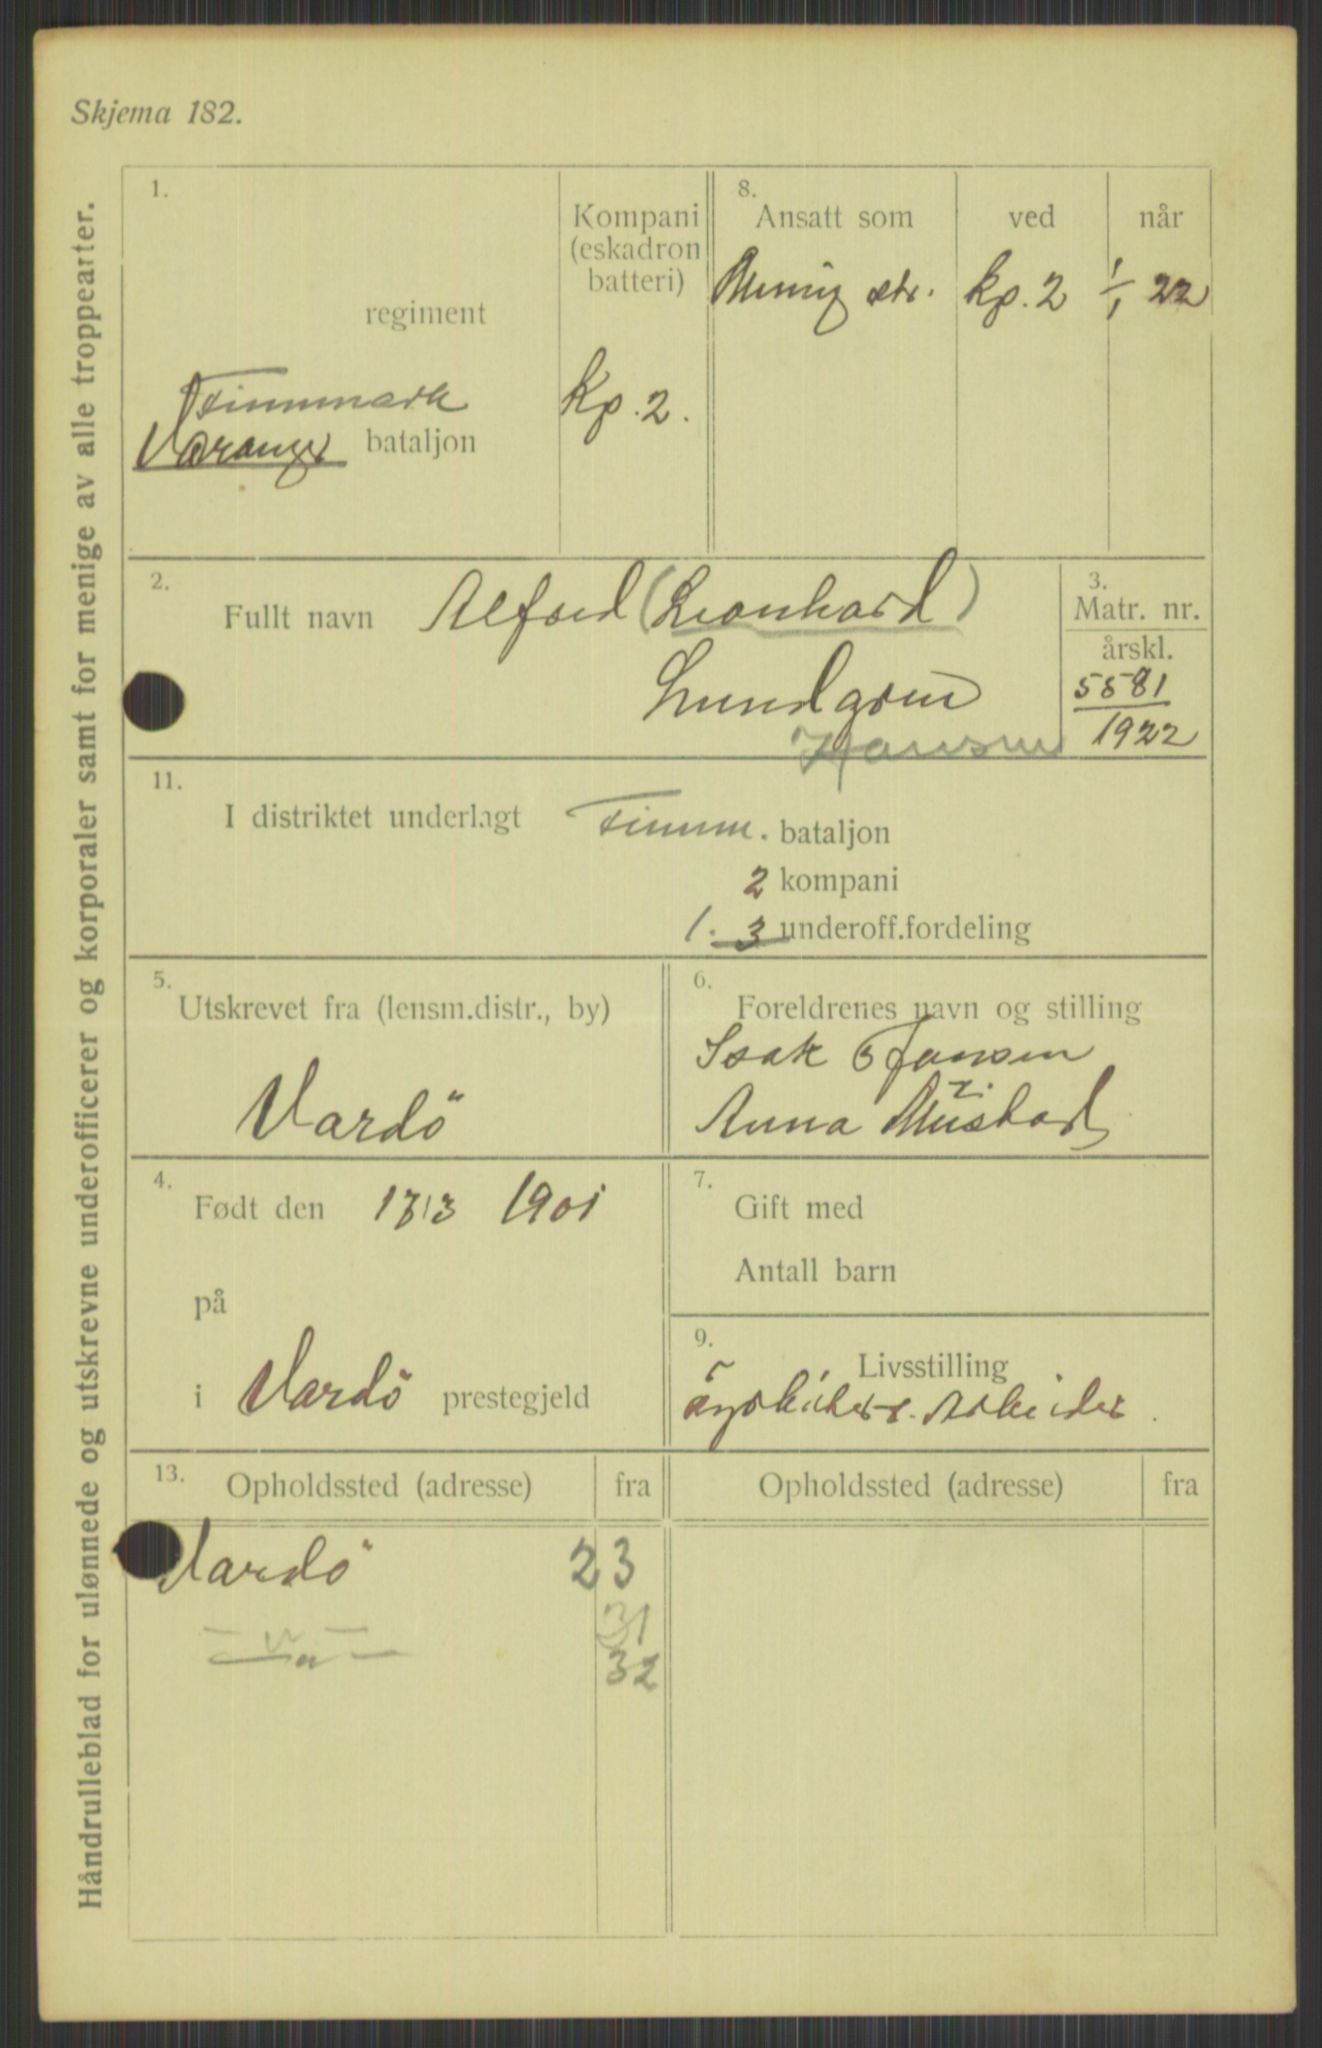 Skjema 182.
Håndrulleblad for ulønnede og utskrevne underofficerer og korporaler samt for menige av alle troppearter.
1.
regiment
Finnmark
Varanger bataljon
Kompani
(eskadron
batteri)
Kp. 2.
8.
Ansatt som ved når
Menig str. kp. 2 1/1 22
2.
Fullt navn Alfred (Leonhard)
Lundgren
Hansen
3.
Matr. nr.
årskl.
5581
1922
11.
I distriktet underlagt Finnm. bataljon
2 kompani
1. 3 underoff.fordeling
5.
Utskrevet fra (lensm.distr., by)
Vardö
6.
Foreldrenes navn og stilling
Isak Hansen
Anna
4.
Født den 17/3 1901
på
i Vardö prestegjeld
7.
Gift med
Antall barn
9.
Livsstilling
Arbeider
13.
Opholdssted (adresse) fra
Vardö 23
— " — 31
— " — 32
Opholdssted (adresse) fra